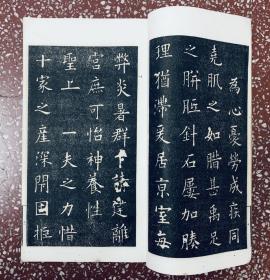 為心憂勞成疾同
堯肌之如腊甚禹足
之胼胝針石屢加腠
理猶滯爰居京室每
弊炎暑群下請建離
宮庶可怡神養性
聖上一夫之力惜
十家之產深閉固拒